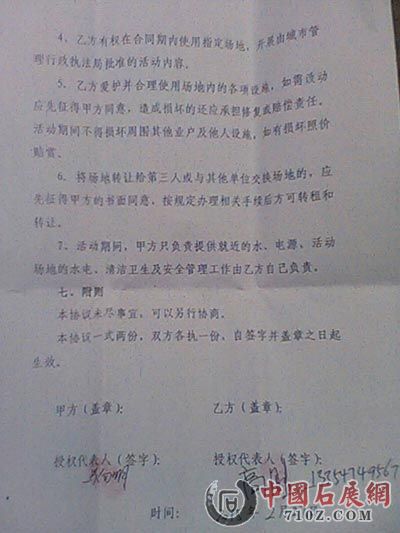 4、乙方有权在合同期内使用指定场地，开展由城市管
理行政执法局批准的活动内容。
5、乙方爱护并合理使用场地内的各项设施，如需改动
应先征得甲方同意，造成损坏的还应承担修复或赔偿责任。
活动期间不得损坏周围其他业户及他人设施，如有损坏照价
赔赏。
6、将场地转让给第三人或与其他单位交换场地的，应
先征得甲方的书面同意。按规定办理相关手续后方可转租和
转让。
7、活动期间，甲方只负责提供就近的水、电源、活动
场地的水电、清洁卫生及安全管理工作由乙方自己负责。
七、附则
本协议未尽事宜，可以另行协商。
本协议一式两份，双方各执一份，自签字并盖章之日起
生效。
甲方（盖章）： 乙方（盖章）：
授权代表人（签字）： 授权代表人（签字）：
时间：
中国石展網
710Z.COM